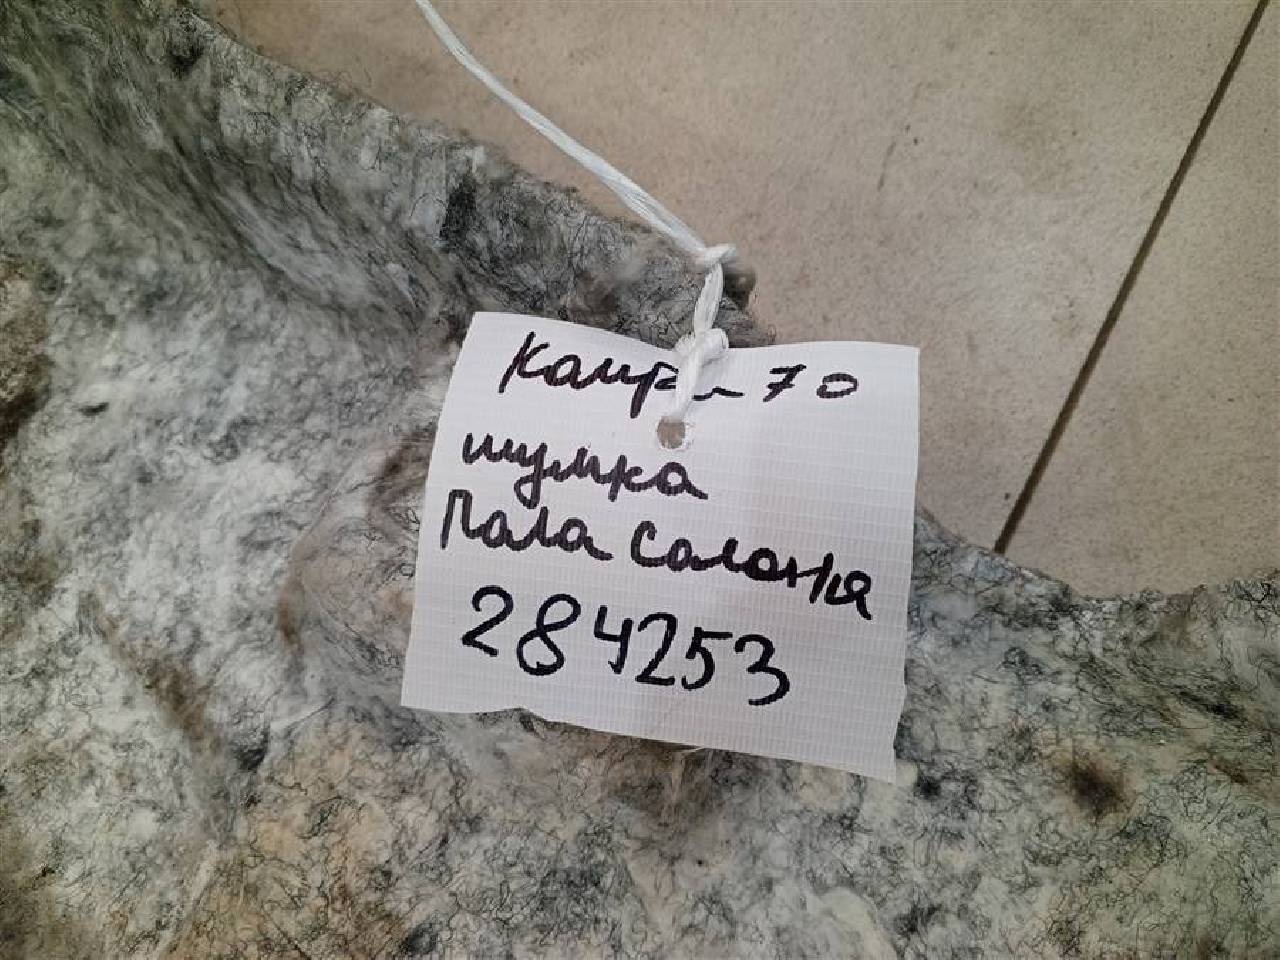 Камри 70
шумка
Пола Салона
284253